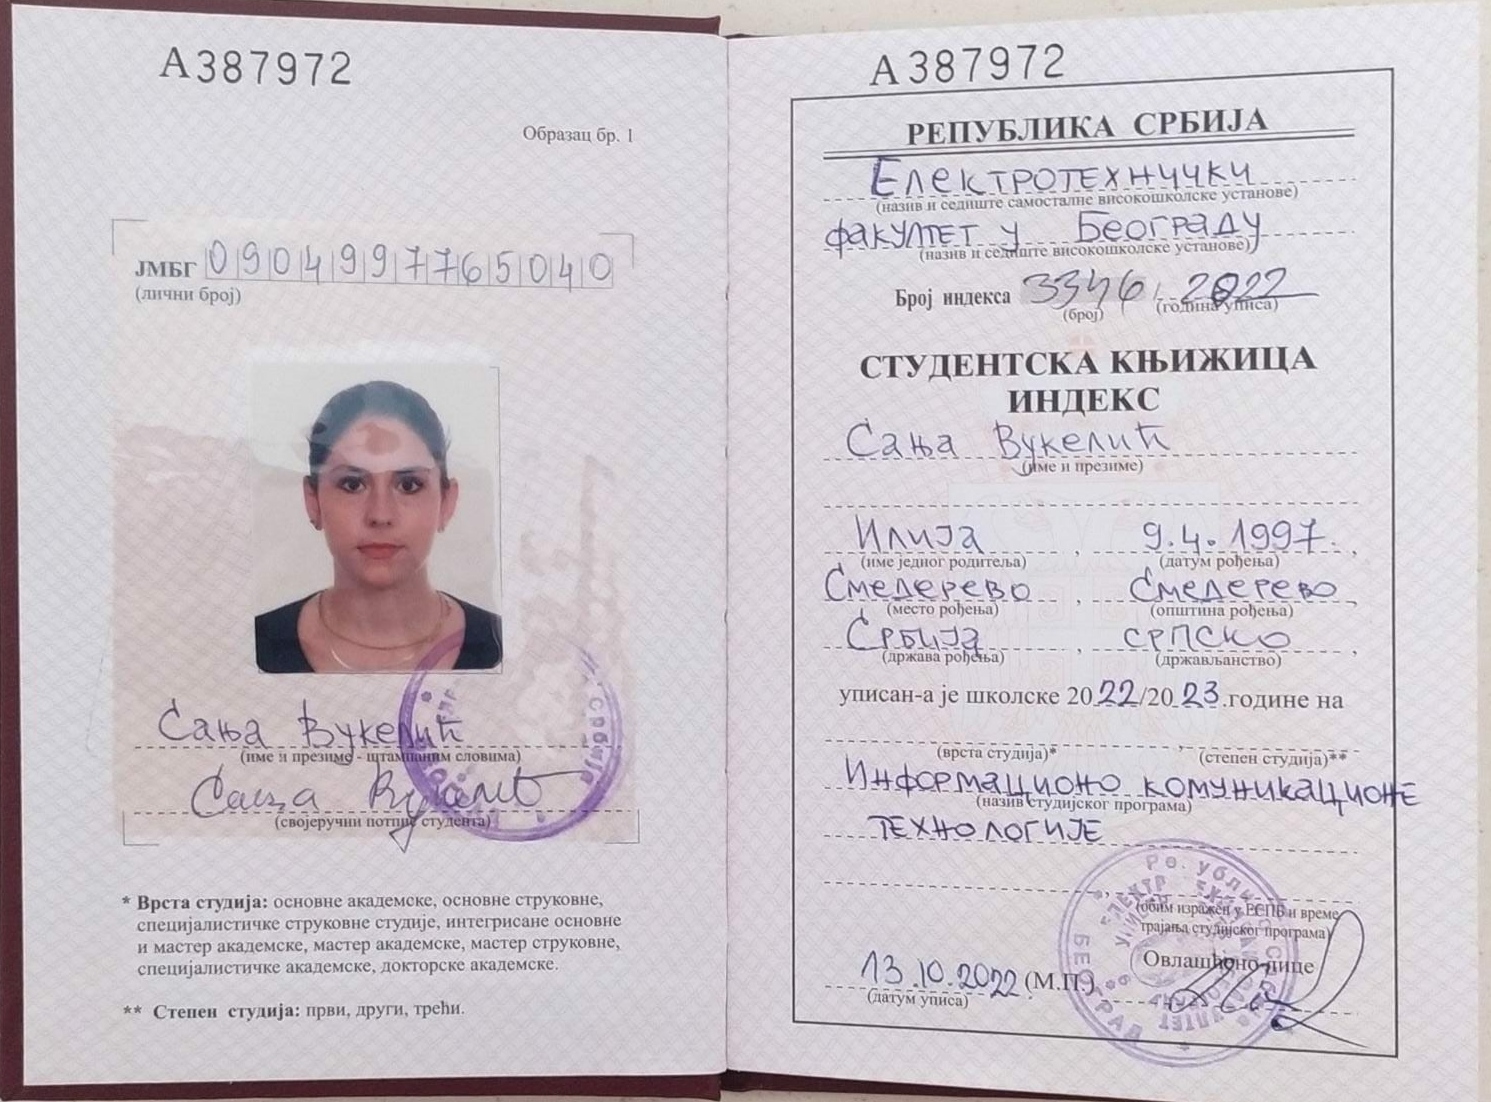 А387972
Образац бр. 1
ЈМБГ 0904997765040
(лични број)
Сања Вукелић
(име и презиме - штампаним словима)
Сања Вукелић
(својеручни потпис студента)
* Врста студија: основне академске, основне струковне,
специјалистичке струковне студије, интегрисане основне
и мастер академске, мастер академске, мастер струковне,
специјалистичке академске, докторске академске.
** Степен студија: први, други, трећи.
А387972
РЕПУБЛИКА СРБИЈА
Електротехнички
(назив и седиште самосталне високошколске установе)
факултет у Београду
(назив и седиште високошколске установе)
Број индекса 3346 / 2022
(број) (година уписа)
СТУДЕНТСКА КЊИЖИЦА
ИНДЕКС
Сања Вукелић
(име и презиме)
Илија , 9.4.1997. ,
(име једног родитеља) (датум рођења)
Смедерево , Смедерево ,
(место рођења) (општина рођења)
Србија , српско ,
(држава рођења) (држављанство)
уписан-а је школске 2022/2023.године на
(врста студија)* , (степен студија)**
Информационо комуникационе
(назив студијског програма)
технологије
(обим изражен у ЕСПБ и време
трајања студијског програма)
Овлашћено лице
13.10.2022. (М.П.)
(датум уписа)